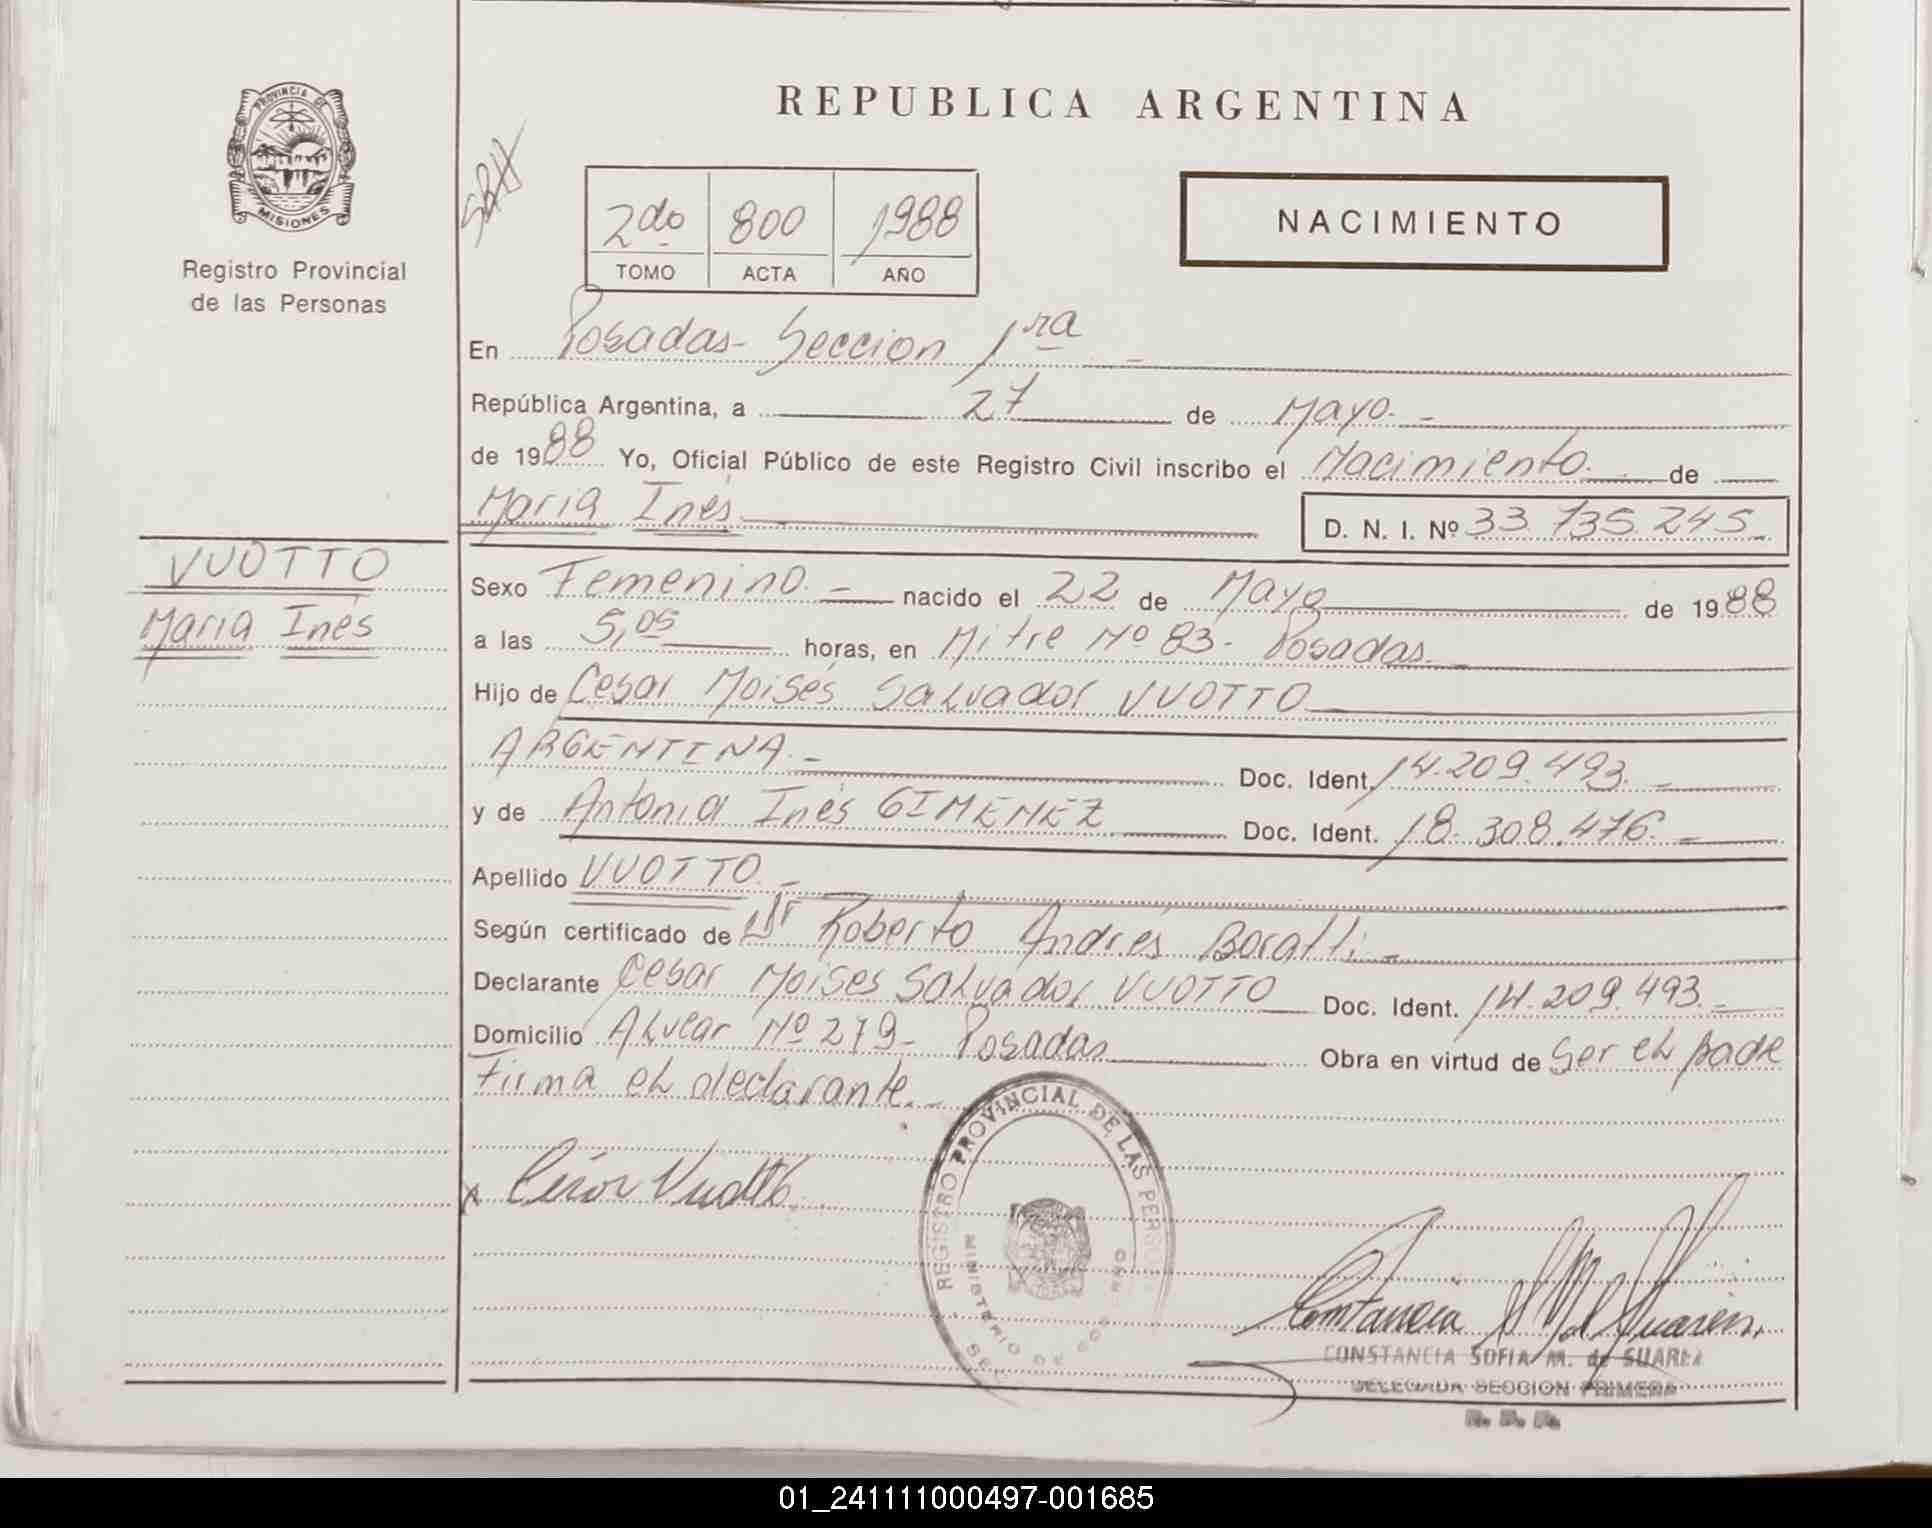 REPUBLICA ARGENTINA
PROVINCIA DE
MISIONES
Registro Provincial
de las Personas
2do 800 1988
TOMO ACTA AÑO
NACIMIENTO
En Posadas - Seccion 1ra -
República Argentina, a 27 de Mayo. -
de 1988 Yo, Oficial Público de este Registro Civil inscribo el Nacimiento. de
Maria Inés. D. N. I. Nº 33.735.245.
VUOTTO
Maria Inés
Sexo Femenino. - nacido el 22 de Mayo de 1988
a las 5,05 horas, en Mitre Nº 83 - Posadas. -
Hijo de Cesar Moisés Salvador VUOTTO
ARGENTINA. - Doc. Ident. 14.209.493. -
y de Antonia Inés GIMENEZ Doc. Ident. 18.308.476. -
Apellido VUOTTO. -
Según certificado de Dr Roberto Andrés Boratti. -
Declarante Cesar Moises Salvador VUOTTO Doc. Ident. 14.209.493. -
Domicilio Alvear Nº 279 - Posadas Obra en virtud de ser el padre
Firma el declarante. -
x César Vuotto
REGISTRO PROVINCIAL DE LAS PERSO
MINISTERIO DE GOBIERNO
Constancia S M de Suarez.
CONSTANCIA SOFIA M. de SUAREZ
DELEGADA SECCION PRIMERA
R. P. P.
01_241111000497-001685